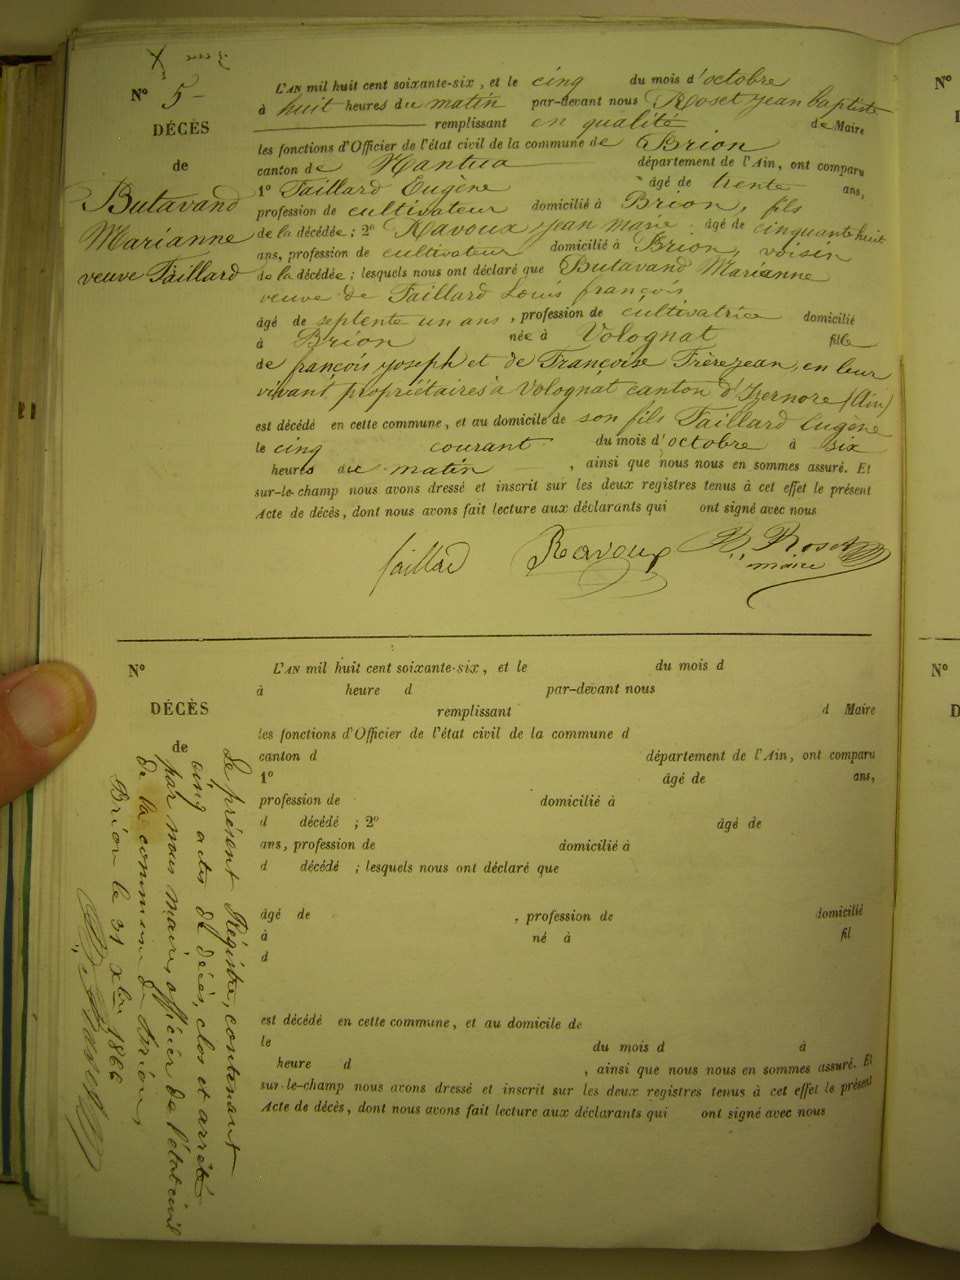 N° 5 -
DÉCÈS
de
Butavand
Marianne
veuve Taillard
L'AN mil huit cent soixante-six, et le cinq du mois d'octobre
à huit heures du matin par-devant nous Roset jean baptiste
remplissant en qualité de Maire
les fonctions d'Officier de l'état civil de la commune de Brion
canton de Nantua département de l'Ain, ont comparu
1° Taillard Eugène âgé de trente ans,
profession de cultivateur domicilié à Brion, fils
de la décédée ; 2° Ravoux jean marie âgé de cinquante huit
ans, profession de cultivateur domicilié à Brion, voisin
de la décédée ; lesquels nous ont déclaré que Butavand Marianne
veuve de Taillard Louis françois
âgé de septente un ans, profession de cultivatrice domicilié
à Brion née à Volognat fille
de françois joseph et de Françoise Frèrejean, en leur
vivant propriétaires à Volognat canton d'Izernore (Ain)
est décédé en cette commune, et au domicile de son fils Taillard Eugène
le cinq courant du mois d'octobre à six
heures du matin, ainsi que nous nous en sommes assuré. Et
sur-le-champ nous avons dressé et inscrit sur les deux registres tenus à cet effet le présent
Acte de décès, dont nous avons fait lecture aux déclarants qui ont signé avec nous
Taillard Ravoux Roset
maire
N°
DÉCÈS
de
L'AN mil huit cent soixante-six, et le du mois d
à heure d par-devant nous
remplissant d Maire
les fonctions d'Officier de l'état civil de la commune d
canton d département de l'Ain, ont comparu
1° âgé de ans,
profession de domicilié à
d décédé ; 2° âgé de
ans, profession de domicilié à
d décédé ; lesquels nous ont déclaré que
âgé de , profession de domicilié
à né à fil
d
est décédé en cette commune, et au domicile de
le du mois d à
heure d , ainsi que nous nous en sommes assuré. Et
sur-le-champ nous avons dressé et inscrit sur les deux registres tenus à cet effet le présent
Acte de décès, dont nous avons fait lecture aux déclarants qui ont signé avec nous
Le présent Régistre, contenant
cinq actes de décès, clos et arrêté
par nous maire, officier de l'état civil
de la commune de Brion,
Brion le 31 xbre 1866
Roset
N°
N°
D